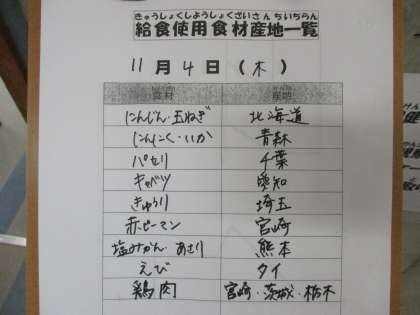 きゅうしょくしようしょくざいさんちいちらん
給食使用食材産地一覧
11月4日(木)
食材 産地
にんじん・玉ねぎ 北海道
にんにく・いか 青森
パセリ 千葉
キャベツ 愛知
きゅうり 埼玉
赤ピーマン 宮崎
塩みかん・あさり 熊本
えび タイ
鶏肉 宮崎・茨城・栃木